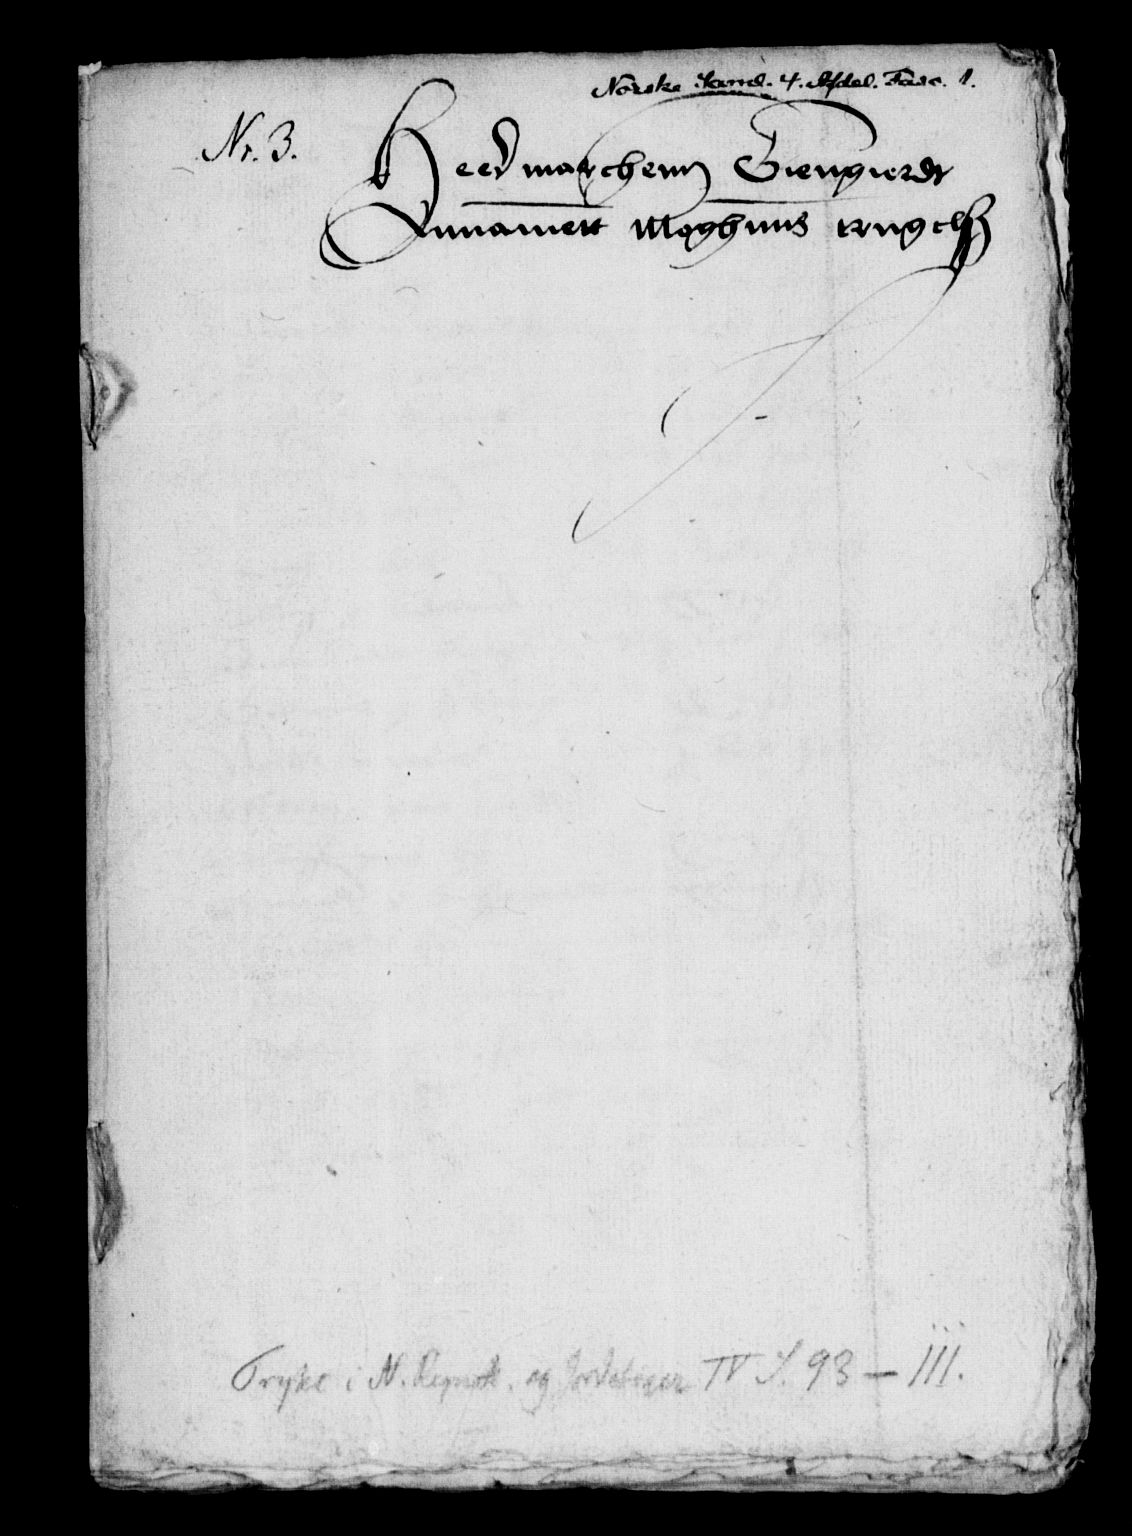 Norske Saml. 4. Afdel. Fasc. 1.
Nr. 3.
Heedmarchenn Giengierdt
Annamett Moghuns
Trykt i N. Regnsk. og Jordebøger IV S. 93 — 111.